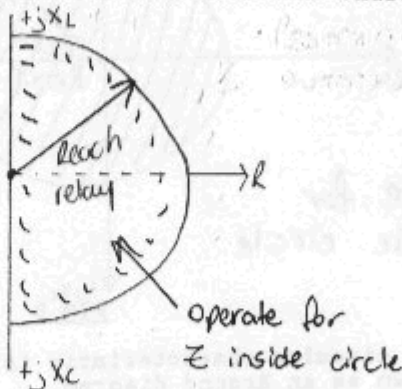 +jXL
Reach
relay
R
operate for
Z inside circle
+jXc